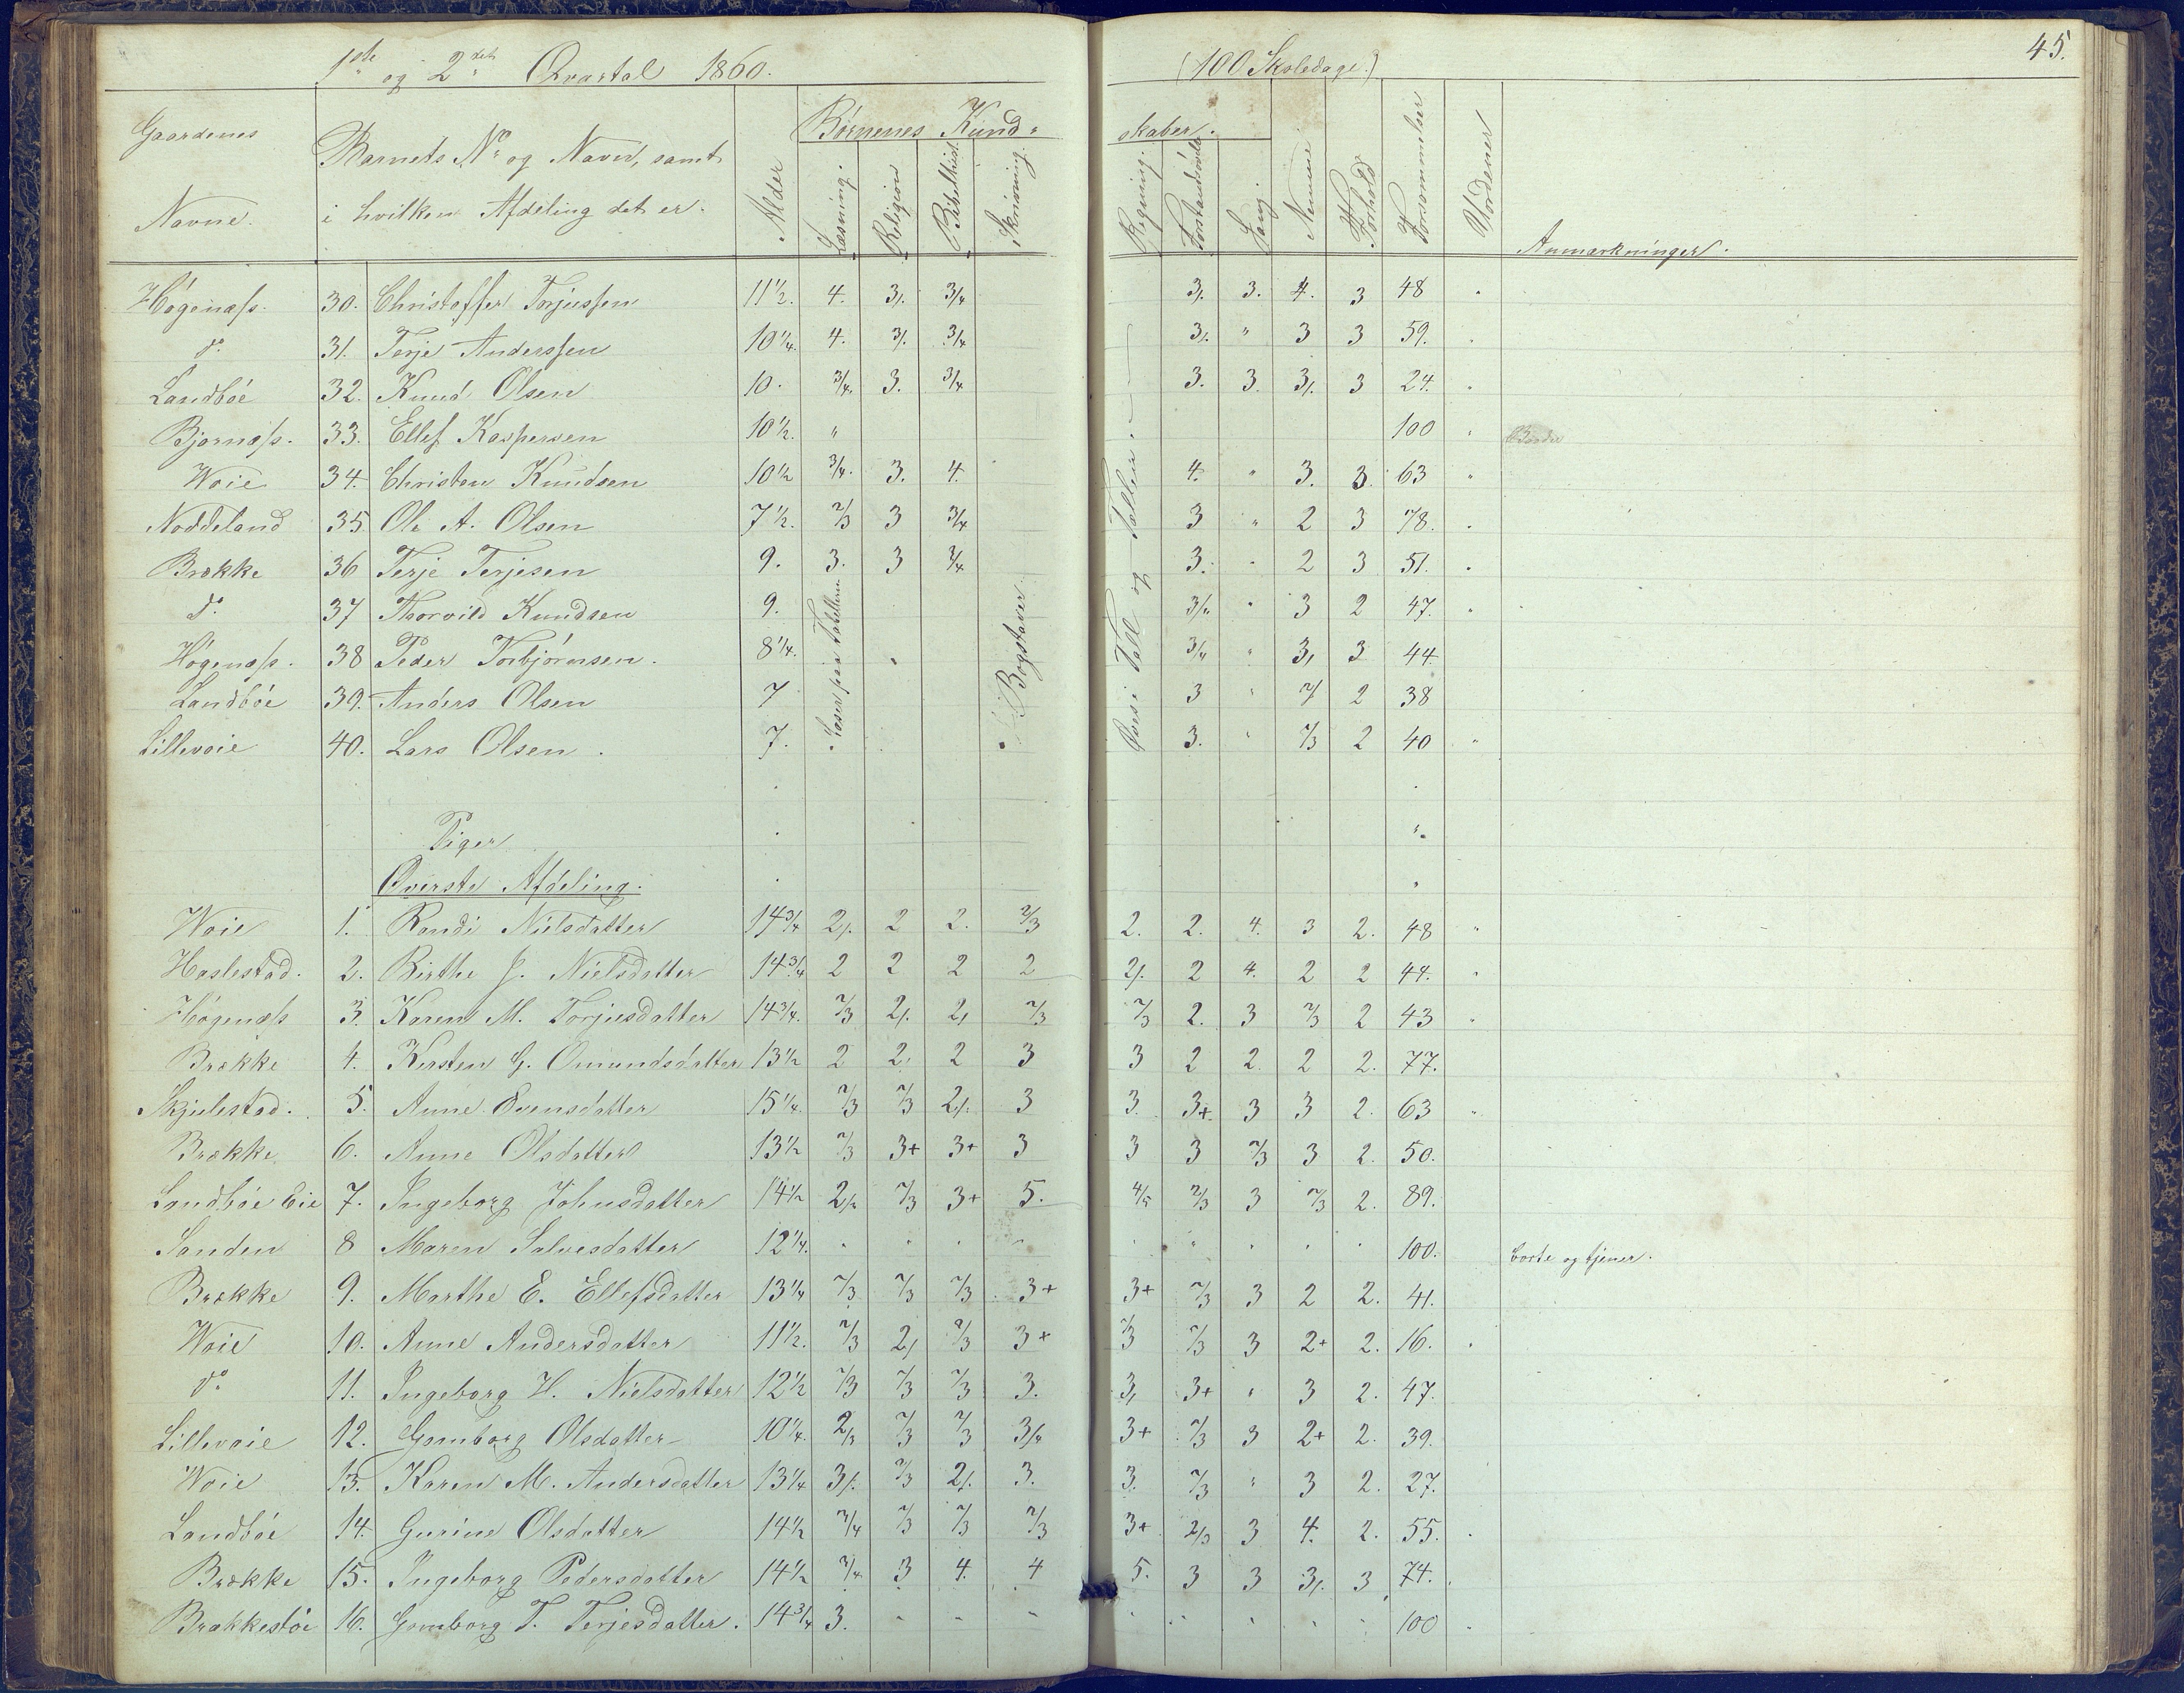 1ste og 2det Qvartal 1860. (100 Skoledage.) 45.
Gaardenes Navne. Barnets No og Navn, samt i hvilken Afdeling det er. Alder Børnenes Kundskaber. Læsning. Religion Bibelhist. Skrivning. Regning. Forstandsøvelse Sang Nemme Forhold Forsømmelser Uordener Anmærkninger.
Høgenæss. 30. Christoffer Torjussen 11 1/2. 4. 3/. 3/4 3/. 3. 4. 3 48 "
do. 31. Terje Anderssen 10 1/4. 4. 3/. 3/4 3/. " 3 3 59. "
Landbøe 32. Knud Olsen 10. 3/4. 3. 3/4 3. 3. 3/. 3 24. "
Bjørnæss. 33. Ellef Kaspersen 10 1/2. " 100 "
Woie 34. Christen Knudsen 10 1/2 3/4. 3. 4. 4. " 3. 3. 63 "
Noddeland 35 Ole A. Olsen 7 1/2. 2/3 3 3/4 3 " 2 3 78. "
Brække 36 Terje Terjesen 9. 3. 3 3/4 3. " 2 3 51. "
do. 37 Thorvild Knudsen 9. 3/4 " 3 2 47. "
Høgenæss. 38 Peder Torbjørnsen. 8 1/4. 3/4 " 3/ 3 44
Landbøe 39. Anders Olsen 7 3 " 2/ 2 38
Lillevoie 40. Lars Olsen. 7. 3. " 2/3 2 40 "
Læser paa Tabellerne
Bogstaver.
Øves i Tall og Tæller.
Piger
Øverste Afdeling.
Woie 1. Randi Nielsdatter 14 3/4 2/. 2 2. 2/3 2. 2. 4. 3 2. 48 "
Haslestad. 2. Birthe J. Nielsdatter 14 3/4 2 2 2 2 2/. 2 4. 2 2 44. "
Høgenæss 3. Karen M. Torjusdatter 14 3/4. 2/3 2/. 2/ 2/3 2/3 2. 3 2/3 2 43 "
Brække 4. Kirsten G. Omundsdatter 13 1/2 2 2/ 2 3 3 2 2 2 2. 77.
Skjulestad. 5. Anne Evensdatter 15 1/4. 2/3 2/3 2/. 3 3. 3+ 3 3 2. 63 "
Brække 6. Anne Olsdatter 13 1/2 2/3 3+ 3+ 3 3 3 2/3 3 2. 50.
Landbøe Eie 7. Ingeborg Johnsdatter 14 1/2 2/3 2/3 3+ 5. 4/5 2/3 3 2/3 2. 89.
Sanden 8 Maren Salvesdatter 12 1/4. " " " " " " " " " 100. borte og tjener.
Brække 9. Marthe E. Ellefsdatter 13 1/4 2/3 2/3 2/3 3+ 3+ 2/3 3 2 2. 41.
Woie 10. Anne Andersdatter 11 1/2. 2/3 2/ 2/3 3+ 2/3 2/3 3 2+ 2. 16. "
do 11. Ingeborg H. Nielsdatter 12 1/2 2/3 2/3 2/3 3. 3/ 3+ " 3 2. 47.
Lillevoie 12. Gomborg Olsdatter 10 1/4. 2/3 2/3 2/3 3/4 3+ 2/3 3 2+ 2. 39.
Woie 13. Karen M. Andersdatter 13 1/4 3/. 2/3 2/. 3. 3. 2/3 " 3 2. 27.
Landbøe 14. Gurine Olsdatter 14 1/2 3/4 2/3 2/3 2/3 3+ 2/3 3 4. 2. 55. "
Brække 15. Ingeborg Pedersdatter 14 1/2 3/4 3 4. 4 5. 3 3 3/. 3 74. "
Brækkestøe 16. Gomborg T. Terjesdatter. 14 3/4 3. " " " " " " " " 100 "